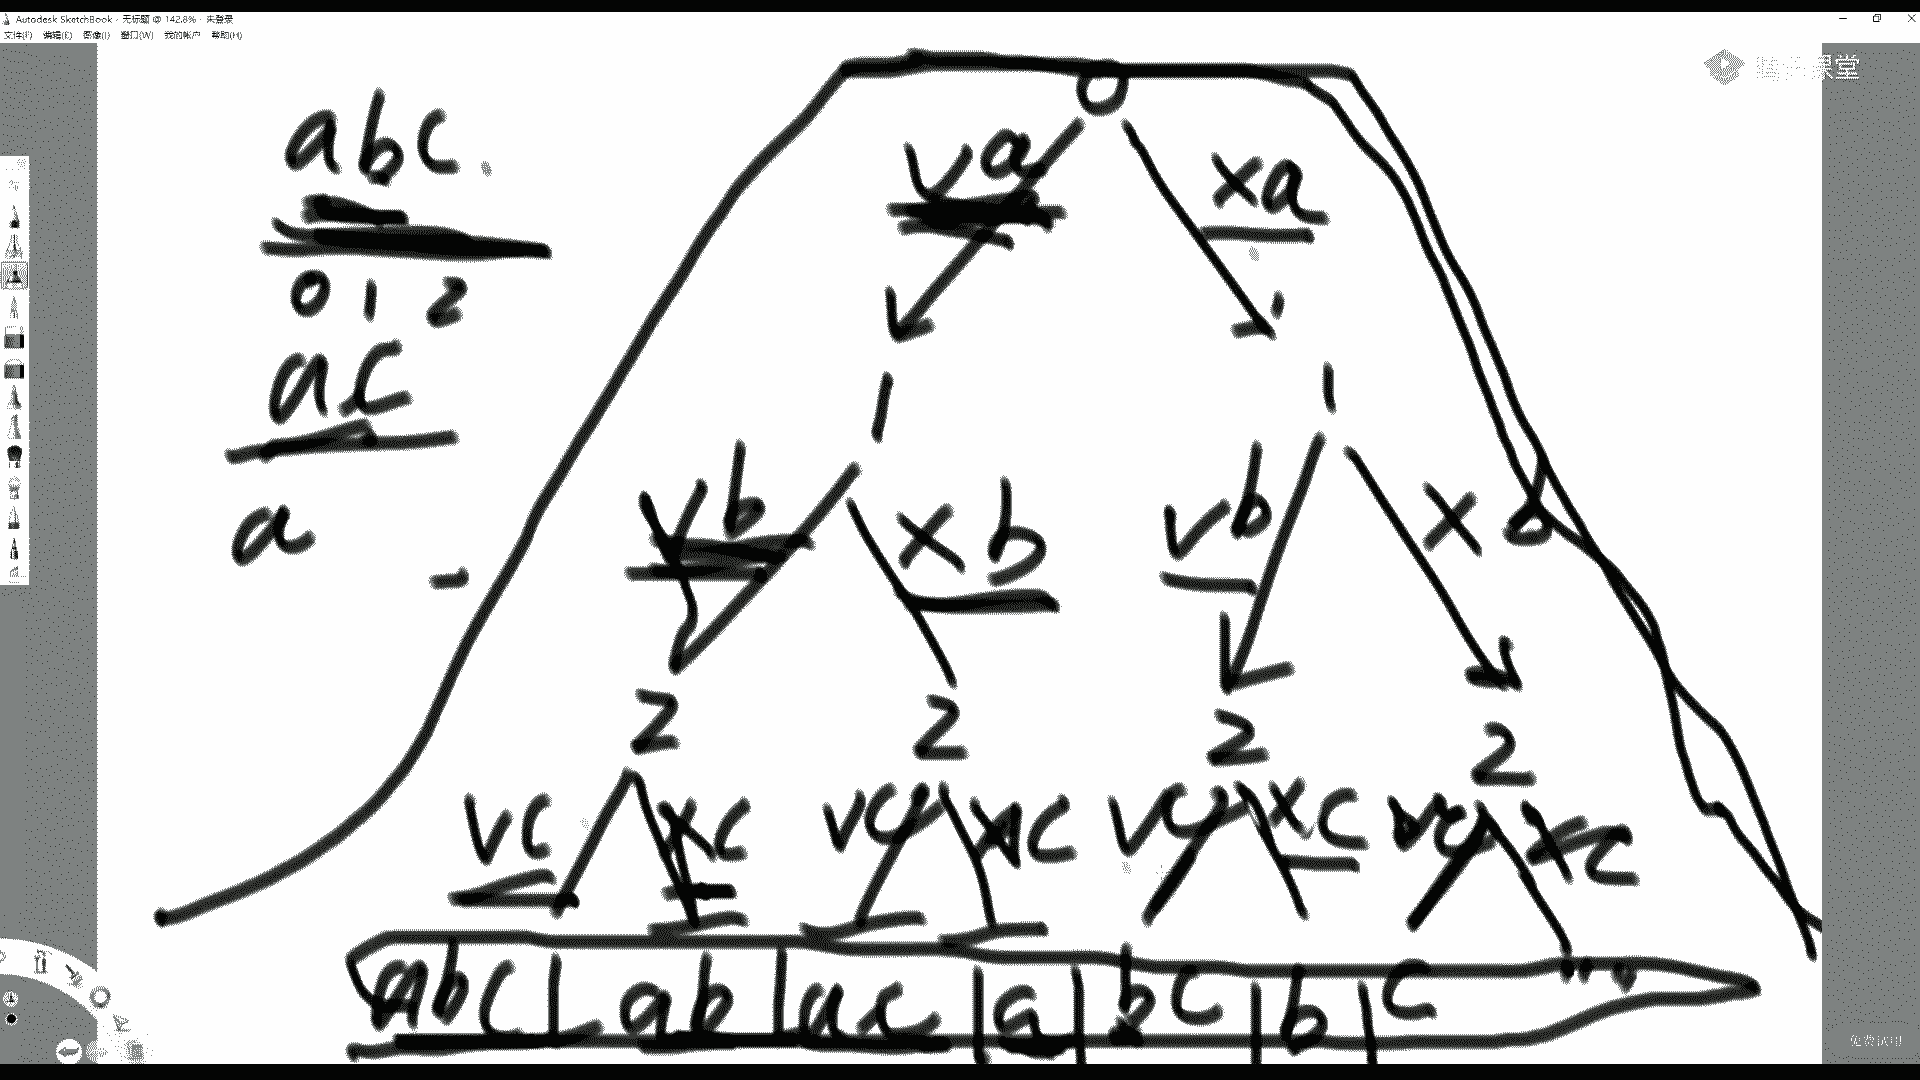 Autodesk SketchBook - 无标题 @ 142.8% - 未登录
文件(F) 编辑(E) 图像(I) 窗口(W) 我的帐户 帮助(H)
腾讯课堂
0
abc
va xa
0 1 2
ac
1 1
a
vb xb vb x b
2 2 2 2
vc xc vc xc vc xc vc xc
abc | ab | ac | a | bc | b | c " "
免费试用